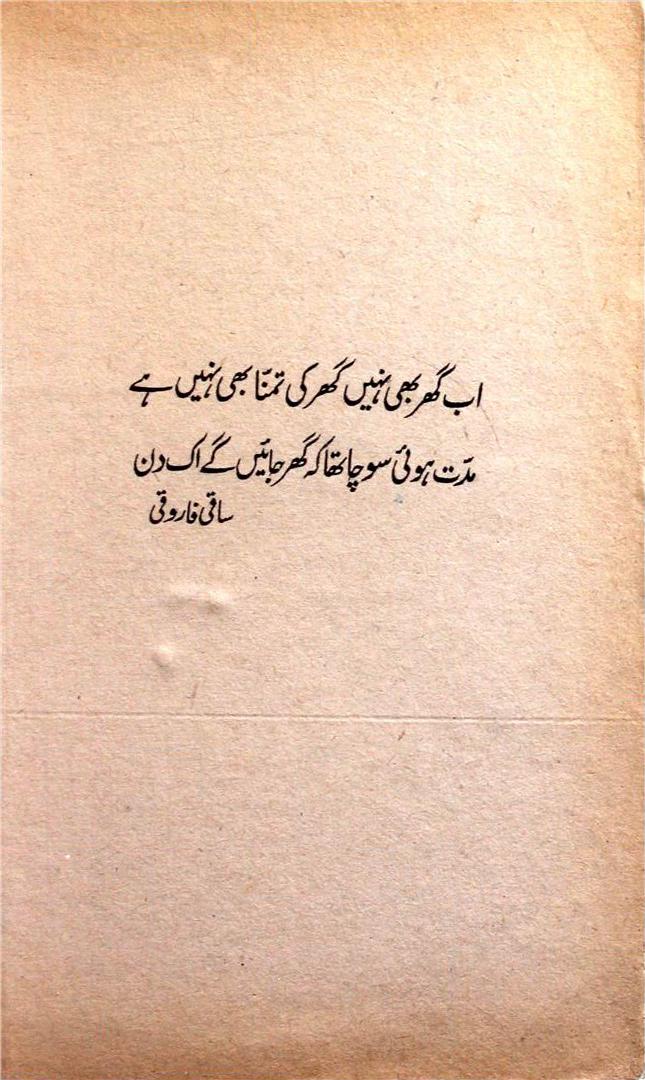 اب گھر بھی نہیں گھر کی تمنّا بھی نہیں ہے
مدّت ہوئی سوچا تھا کہ گھر جائیں گے اک دن
ساقی فاروقی